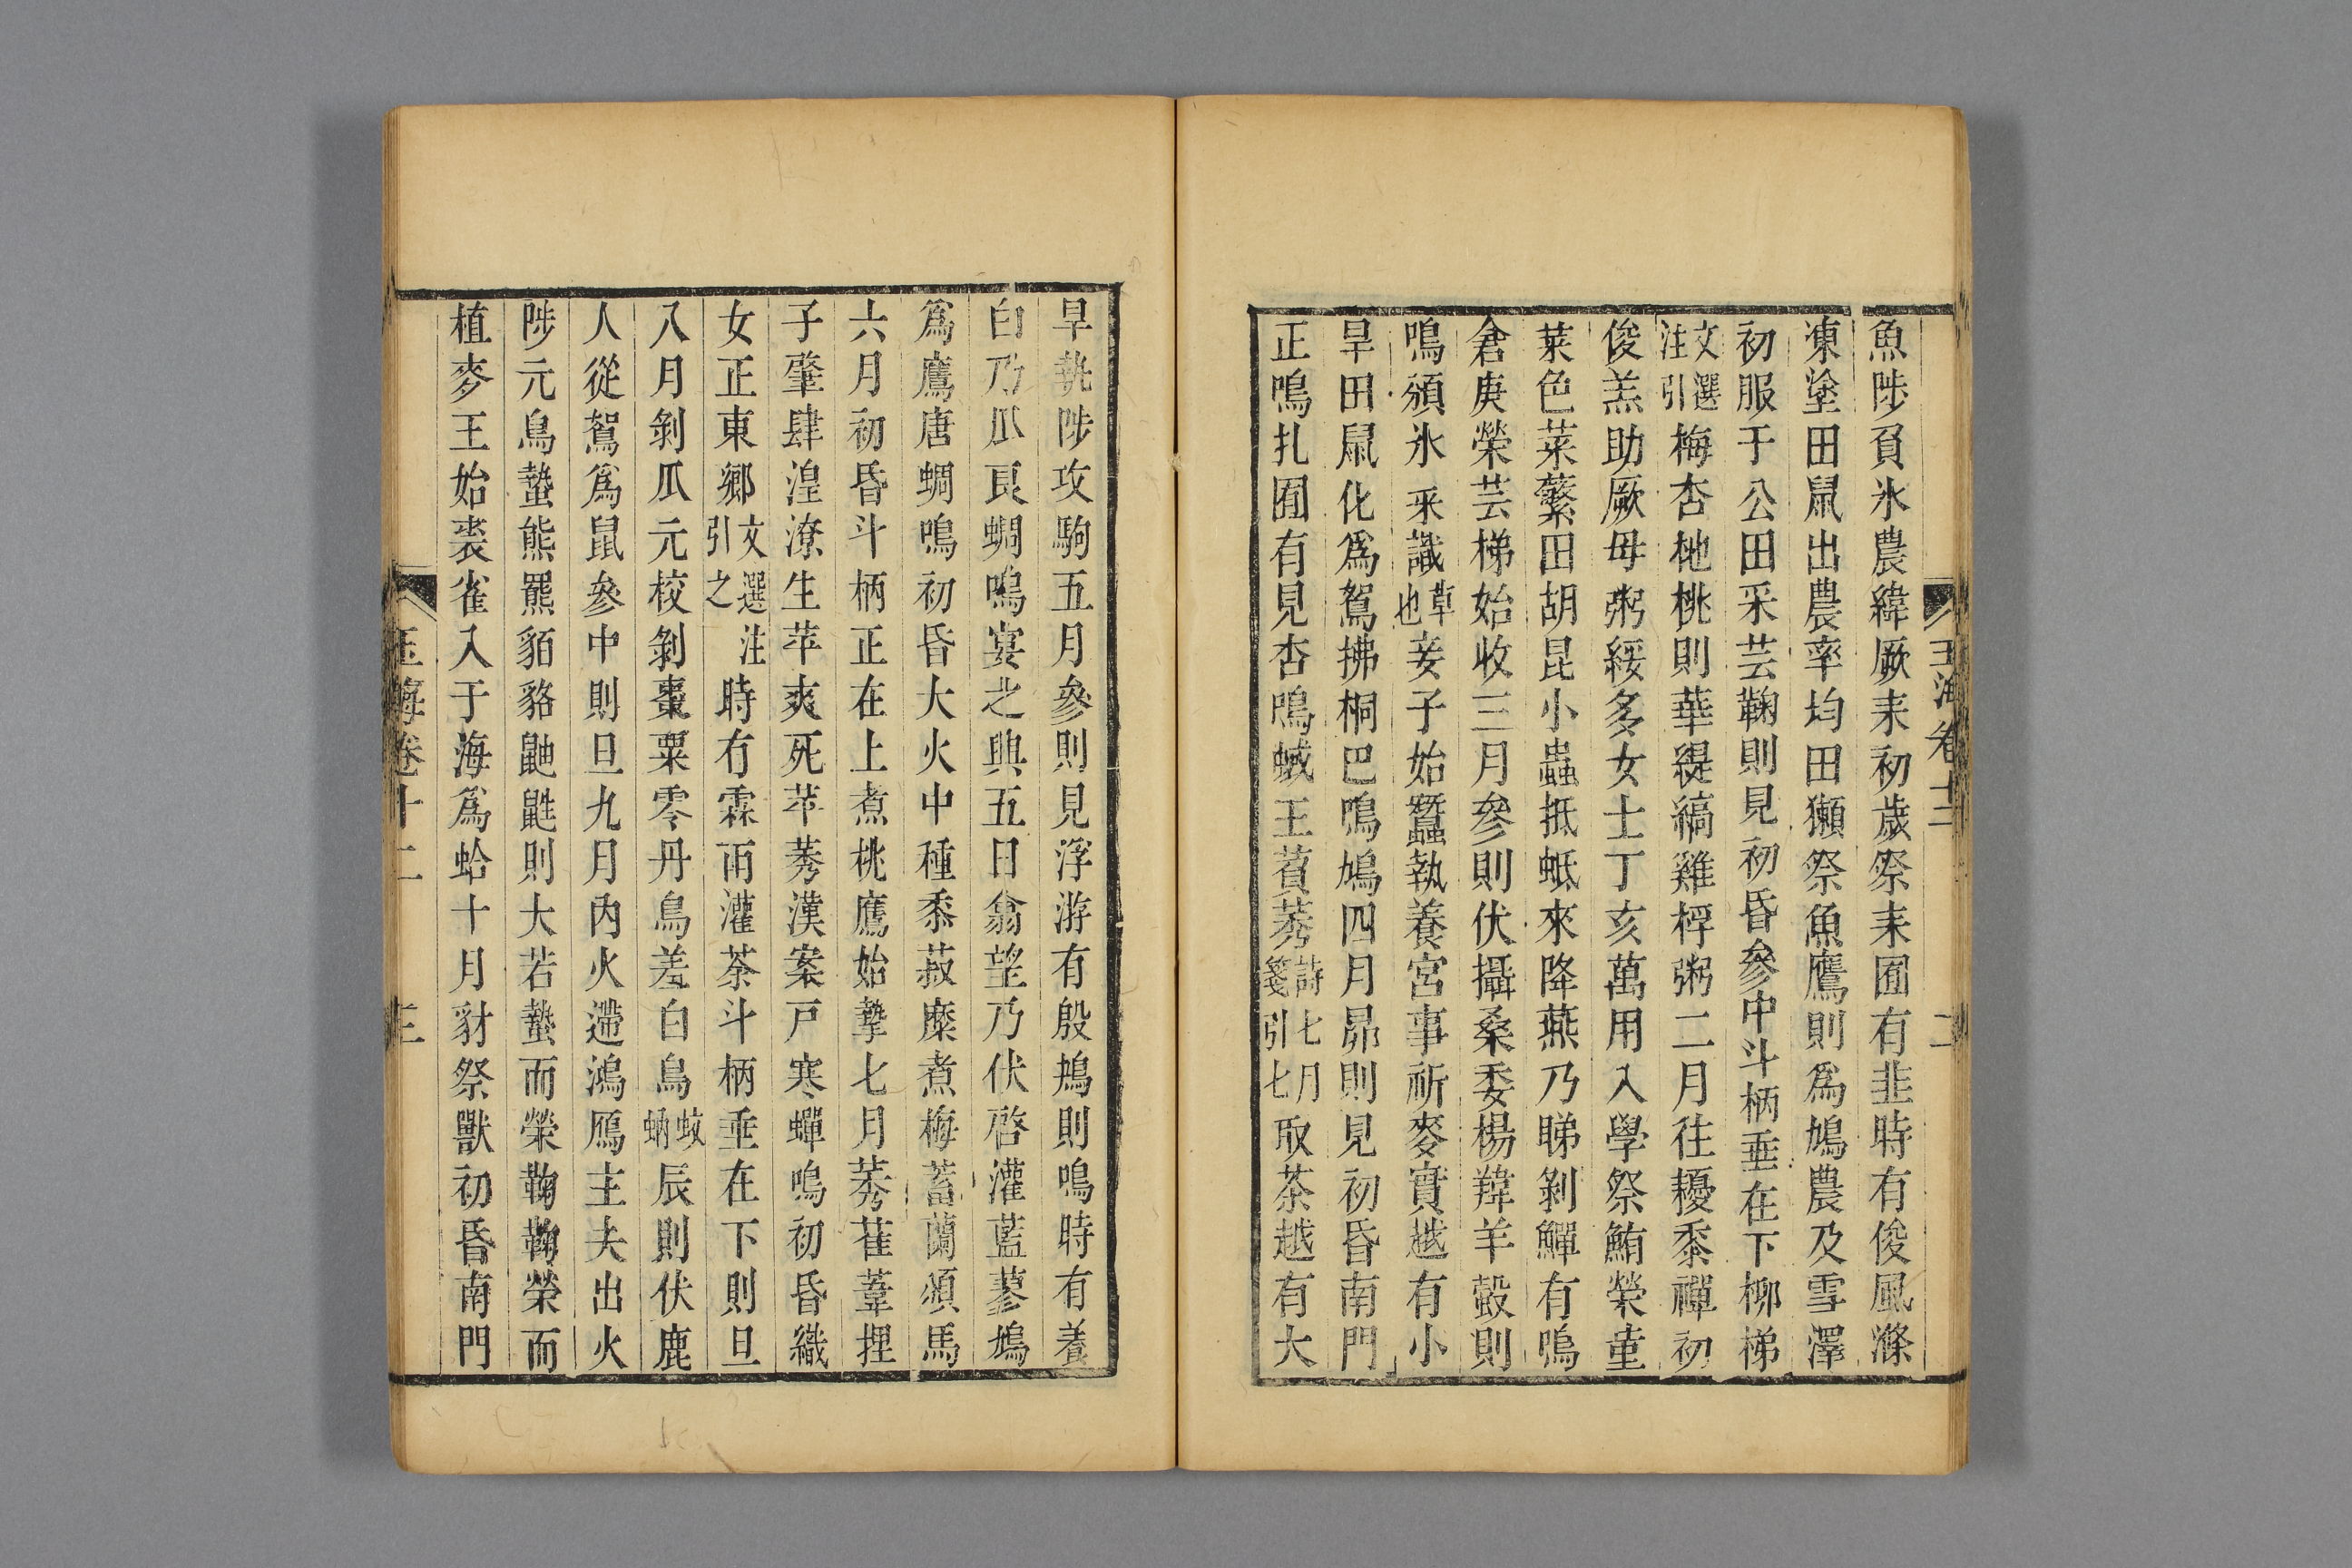 玉海卷十二 二
魚陟負氷農緯厥耒初歲祭耒囿有韭時有俊風滌
凍塗田鼠出農率均田獺祭魚鷹則爲鳩農及雪澤
初服于公田采芸鞠則見初昏參中斗柄垂在下柳梯
文選注引梅杏杝桃則華緹縞雞桴粥二月往耰黍禪初
俊羔助厥母粥綏多女士丁亥萬用入學祭鮪榮堇
菜色菜蘩田胡昆小蟲抵蚳來降燕乃睇剝鱓有鳴
倉庚榮芸梯始收三月參則伏攝桑委楊羵羊螜則
鳴頒氷采識草也妾子始蠶執養宮事祈麥實越有小
旱田鼠化爲鴽拂桐芭鳴鳩四月昴則見初昏南門
正鳴扎囿有見杏鳴蜮王萯莠詩七月箋引七取荼越有大
旱執陟攻駒五月參則見浮游有殷鴂則鳴時有養
白乃瓜良蜩鳴宴之興五日翕望乃伏啓灌藍蓼鳩
爲鷹唐蜩鳴初昏大火中種黍菽糜煮梅蓄蘭頒馬
六月初昏斗柄正在上煮桃鷹始摯七月莠雚葦狸
子肇肆湟潦生苹爽死苹莠漢案戸寒蟬鳴初昏織
女正東鄉文選注引之時有霖雨灌荼斗柄垂在下則旦
八月剝瓜元校剝棗粟零丹鳥羞白鳥蚊蚋辰則伏鹿
人從鴽爲鼠參中則旦九月内火遰鴻鴈主夫出火
陟元鳥蟄熊羆貊貉鼬鼪則大若蟄而榮鞠鞠榮而
植麥王始裘雀入于海爲蛤十月豺祭獸初昏南門
玉海卷十二 三